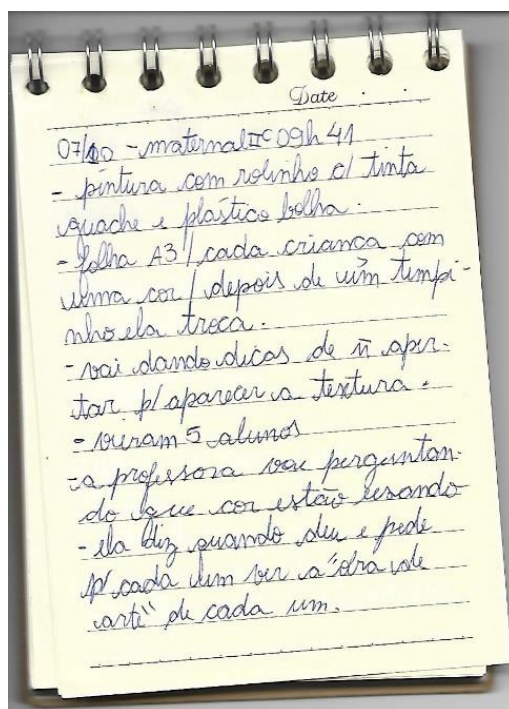 Date . .
07/10 - maternal II C 09h 41
- pintura com rolinho c/ tinta
guache e plástico bolha.
- folha A3 / cada criança com
uma cor / depois de um tempi-
nho ela troca.
- vai dando dicas de ñ aper-
tar p/ aparecer a textura.
- vieram 5 alunos
- a professora vai perguntan-
do que cor estão usando
- ela diz quando deu e pede
p/ cada um ver a "obra de
arte" de cada um.